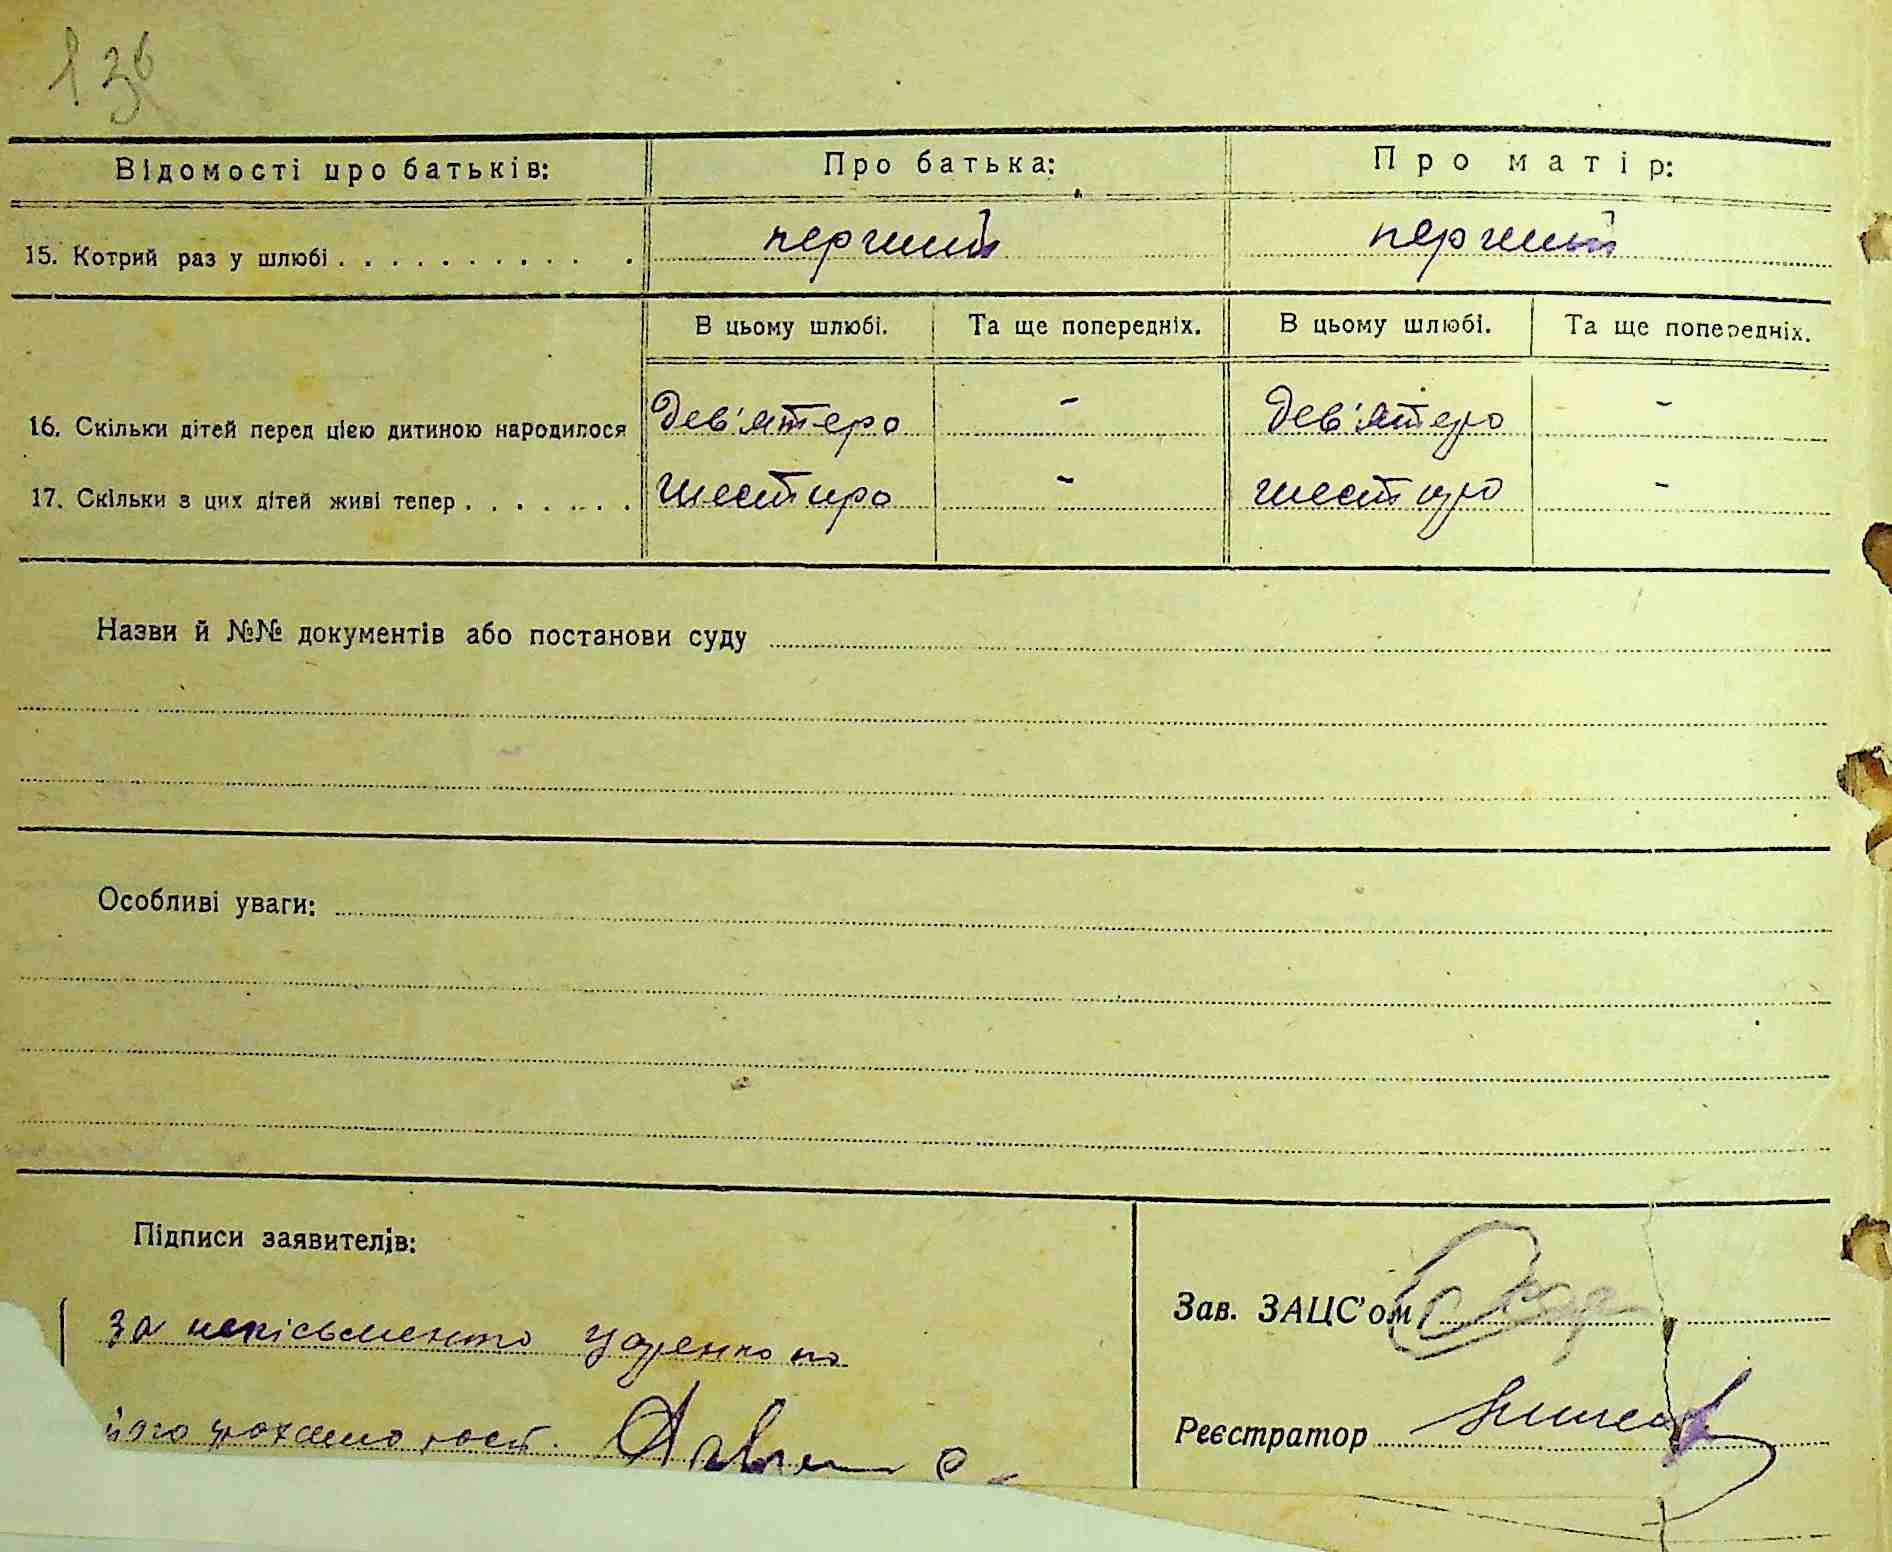 136
Відомості про батьків: Про батька: Про матір:
15. Котрий раз у шлюбі . . . . . . . . . . . перший перший
В цьому шлюбі. Та ще попередніх. В цьому шлюбі. Та ще попередніх.
16. Скільки дітей перед цією дитиною народилося Дев'ятеро - Дев'ятеро -
17. Скільки з цих дітей живі тепер . . . . . . . шестиро - шестиро -
Назви й №№ документів або постанови суду
Особливі уваги:
Підписи заявителів:
Зав. ЗАЦС'ом
за неписьменного
Реєстратор
його